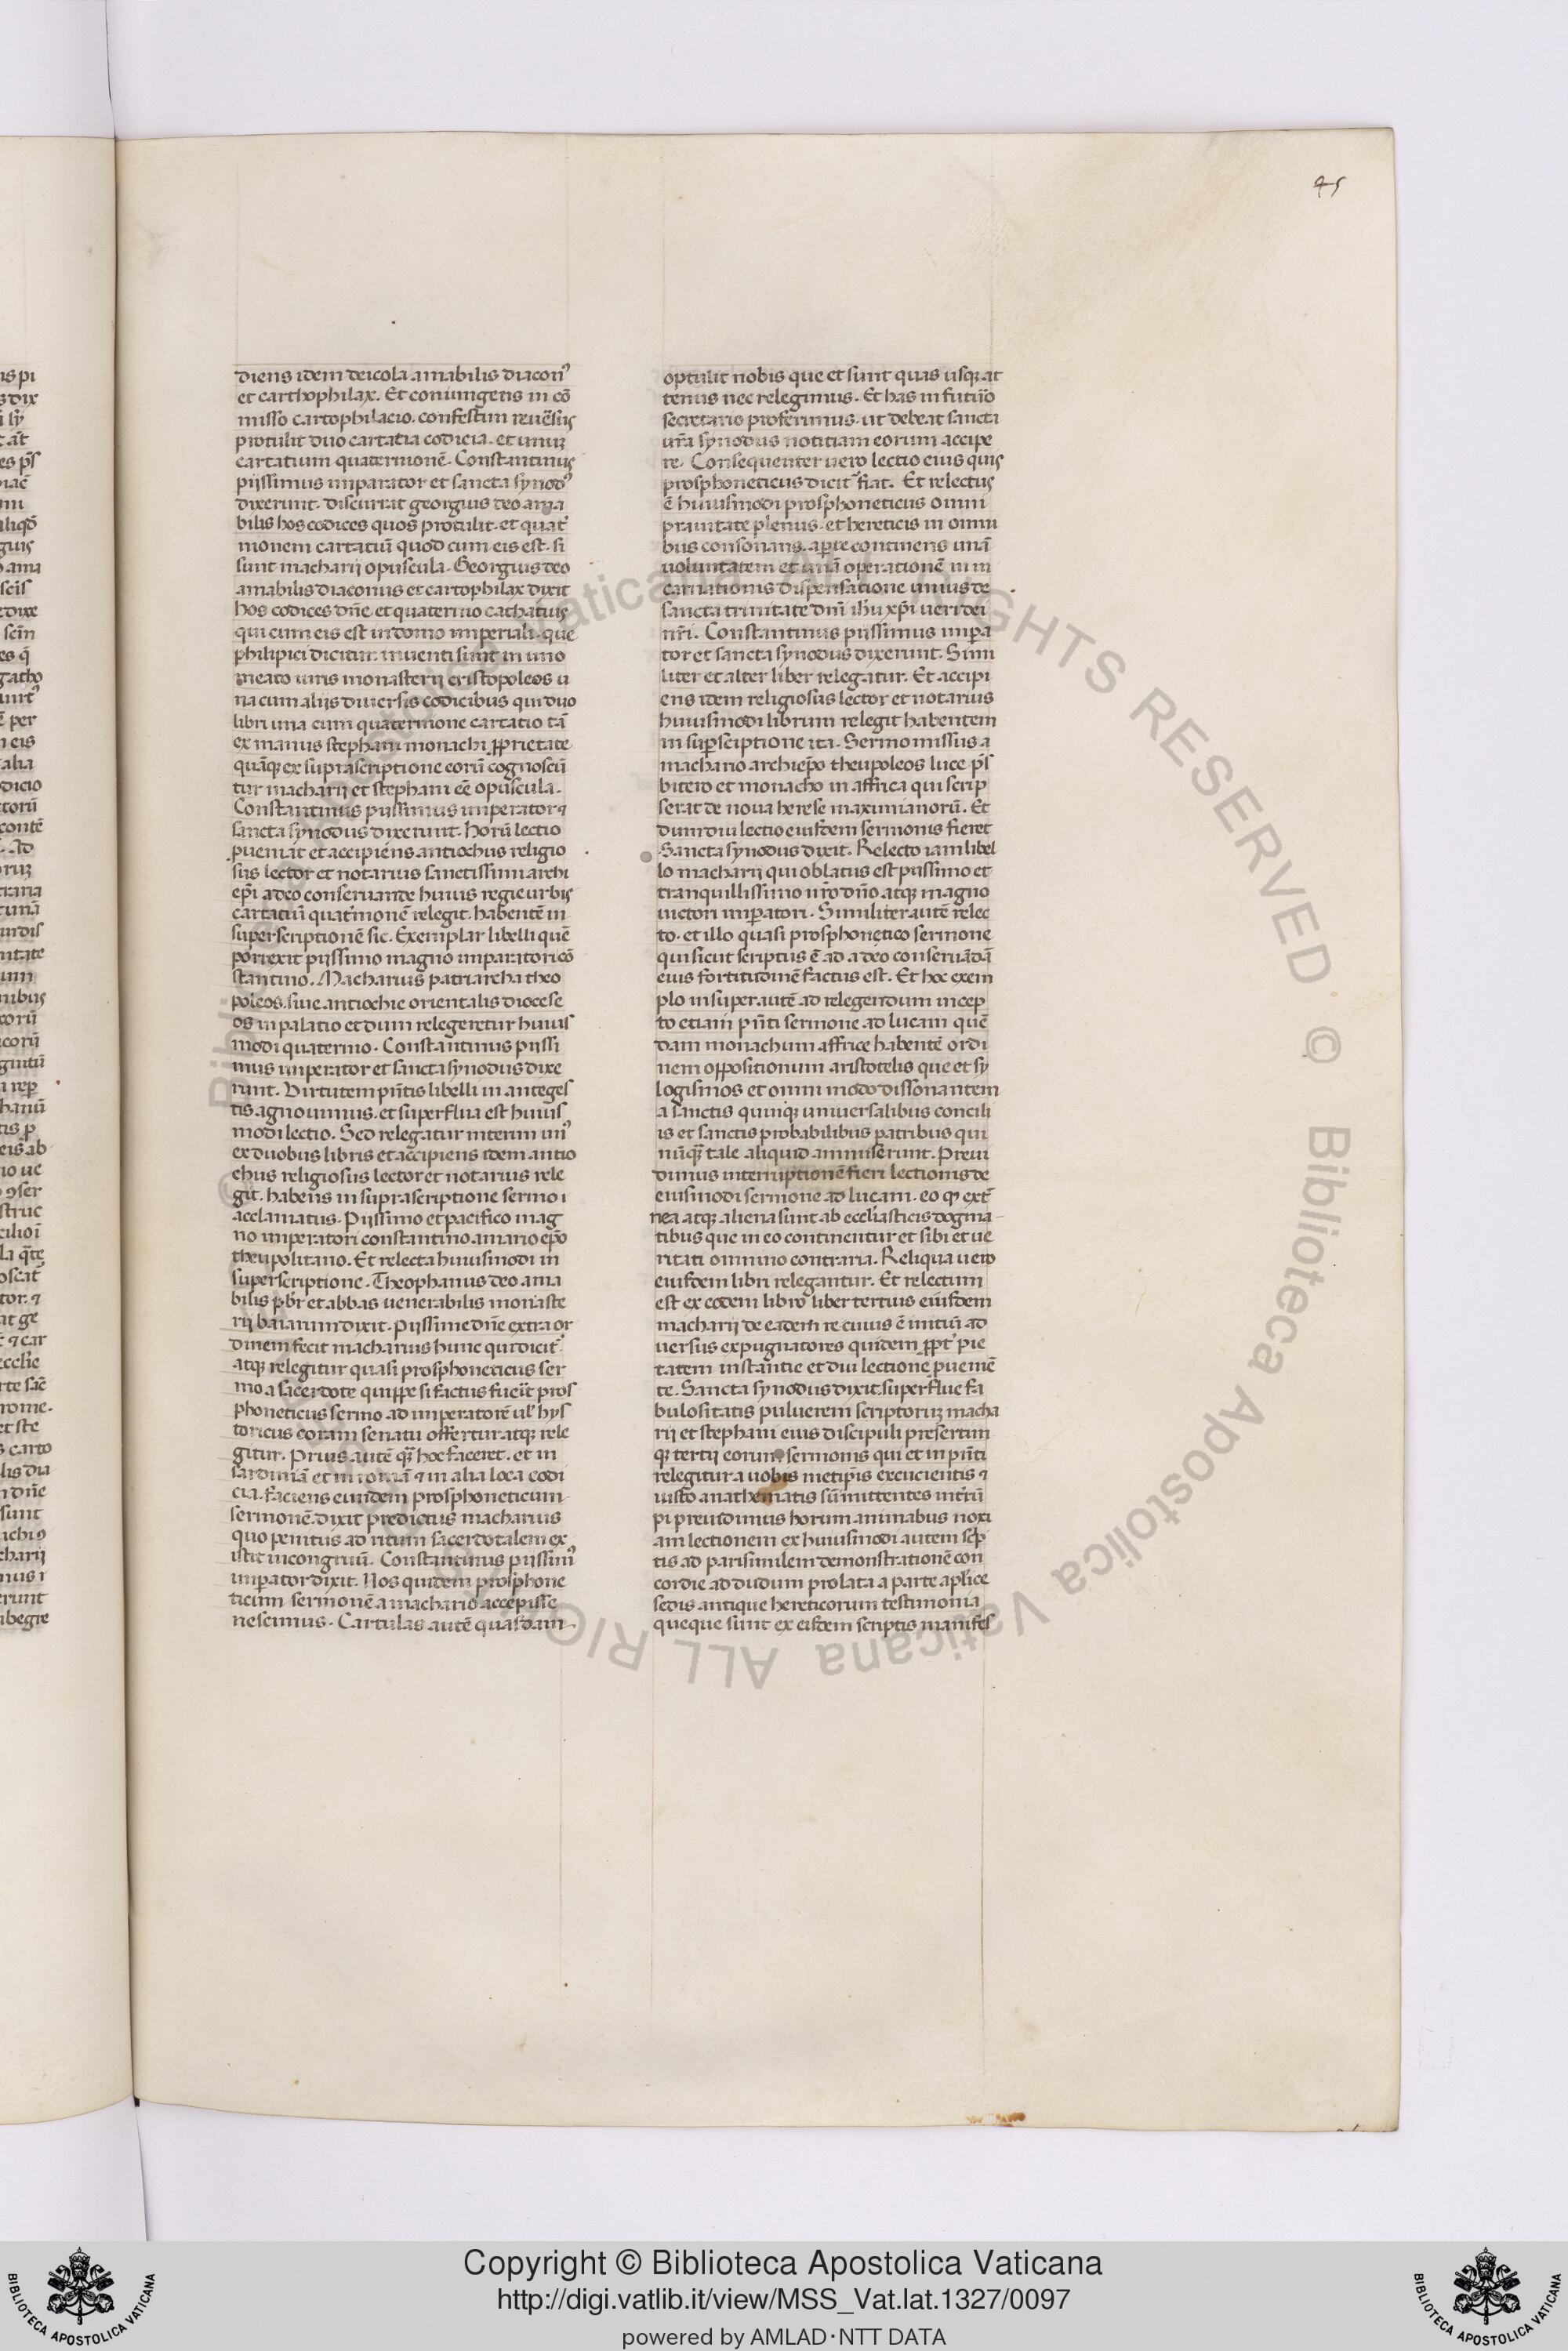 45
diens idem deicola amabilis diaconꝰ
et carthophilax. Et coniungens in cō
misso cartophilacio. confestim reuēsus
protulit duo cartatia codicia. et unuꝫ
cartatium quaternionē. Constantinus
piissimus imparator et sancta synodꝰ
dixerunt. discurrat georgius deo ama
bilis hos codices quos protulit. et quat͛
nionem cartatiū quod cum eis est. si
sunt macharij opuscula. Georgius deo
amabilis diaconus et cartophilax dixit
hos codices dn̄e et quaternio cathatius
qui cum eis est in domo imperiali. que
philipici dicitur. inuenti sunt in uno
meato iuris monasterij crisopoleos u
na cum alijs diuersis codicibus qui duo
libri una cum quaternione cartatio tā
ex manus stephani monachi ꝓprietate
quāqꝫ ex suprascriptione eorū cognoscū
tur macharij et stephani eē opuscula.
Constantinus piissimus imperator ⁊
sancta synodus dixerunt. horū lectio
ꝓueniat et accipiens antiochus religio
sus lector et notarius sanctissimi archi
ep̄i a deo conseruande huius regie urbis
cartatiū quat͛nionē relegit. habentē in
superscriptionē sic. Exemplar libelli quē
porrexit piissimo magno imparatori cō
stantino. Macharius patriarcha theo
poleos. siue antiochie orientalis diocese
os in palatio et dum relegeretur huius
modi quaternio. Constantinus piissi
mus imperator et sancta synodus dixe
runt. Virtutem pn̄tis libelli in anteges
tis agnouimus. et superflua est huius
modi lectio. Sed relegatur interim unꝰ
ex duobus libris et accipiens idem antio
chus religiosus lector et notarius rele
git. habens in suprascriptione sermo i
acclamatus. Piissimo et pacifico mag
no imperatori constantino. a mario ep̄o
theupolitano. Et relecta huiusmodi in
superscriptione. Theophanus deo ama
bilis pb̄r et abbas uenerabilis monaste
rij baiarum dixit. Piissime dn̄e extra or
dinem fecit macharius hunc qui dicit͛
atqꝫ relegitur quasi prosphoneticus ser
mo a sacerdote quippe si factus fuēit pros
phoneticus sermo ad imperatorē ul̄ hys
toricus coram senatu offertur atqꝫ rele
gitur. Prius autē qꝫ hoc faceret. et in
sardiniā et in romā ⁊ in alia loca codi
cia. faciens eundem prosphoneticum
sermonē. dixit predictus macharius
quo penitus ad ritum sacerdotalem ex
istit incongruū. Constantinus piissimꝰ
imꝑator dixit. Nos quidem prosphone
ticum sermonē a machario accepisse
nescimus. Cartulas autē quasdam
optulit nobis que et sunt quas usqꝫ at
tenus nec relegimus. Et has in futu͛o
secretario proferimus. ut debeat sancta
ur̄a synodus notitiam eorum accipe
re. Consequenter uero lectio eius quis
prosphoneticus dicit͛ fiat. Et relectus
ē huiusmodi prosphoneticus omni
prauitate plenus. et hereticis in omni
bus consonans. aꝑte continens unā
uoluntatem et unā operationē in in
carnationis dispensatione unius de
sancta trinitate dn̄i ih̄u xp̄i ueri dei
nr̄i. Constantinus piissimus imꝑa
tor et sancta synodus dixerunt. Simi
liter et alter liber relegatur. Et accipi
ens idem religiosus lector et notarius
huiusmodi librum relegit habentem
in suꝑsciptione ita. Sermo missus a
machario archiep̄o theupoleos luce p͛s
bitero et monacho in affrica qui scrip
serat de noua herese maximianorū. Et
dum diu lectio eiusdem sermonis fieret
Sancta synodus dixit. Relecto iam libel
lo macharij qui oblatus est piissimo et
tranquillissimo nr̄o dn̄o atqꝫ magno
uictori imꝑatori. Similiter autē relec
to. et illo quasi prosphonetico sermone
qui sicut scriptus ē ad a deo conseruādā
eius fortitudinē factus est. Et hoc exem
plo insuper autē ad relegendum incep
to etiam pn̄ti sermone ad lucam quē
dam monachum affrice habentē ordi
nem oppositionum aristotelis que et sy
logismos et omni modo dissonantem
a sanctis quinqꝫ uniuersalibus concili
is et sanctis probabilibus patribus qui
nūqꝫ tale aliquid ammiserunt. Preui
dimus interruptionē fieri lectionis de
eiusmodi sermone ad lucam. eo qꝫ ext͛
nea atqꝫ aliena sunt ab eccl̄iasticis dogma
tibus que in eo continentur et sibi et ue
ritati omnino contraria. Reliqua uero
eiusdem libri relegantur. Et relectum
est ex eodem libro liber tertius eiusdem
macharij de eadem re cuius ē initiū ad
uersus expugnatores quidem ꝓpt͛ pie
tatem instantie et diu lectione ꝓuenē
te. Sancta synodus dixit superflue fa
bulositatis puluerem scriptoruꝫ macha
rij et stephani eius discipuli presertim
qꝫ tertij eorum sermonis qui et in pn̄ti
relegitur a uobis metip̄is excucientis ⁊
iusto anathematis sūmittentes int͛rū
pi preuidimus horum animabus noxi
am lectionem ex huiusmodi autem sc͛p
tis ad parisimilem demonstrationē con
cordie ad dudum prolata a parte apl̄ice
sedis antique hereticorum testimonia
queque sunt ex eisdem scriptis manifes
Copyright © Biblioteca Apostolica Vaticana
http://digi.vatlib.it/view/MSS_Vat.lat.1327/0097
powered by AMLAD·NTT DATA
BIBLIOTECA APOSTOLICA VATICANA
BIBLIOTECA APOSTOLICA VATICANA
© Biblioteca Apostolica Vaticana ALL RIGHTS RESERVED © Biblioteca Apostolica Vaticana ALL RIGHTS